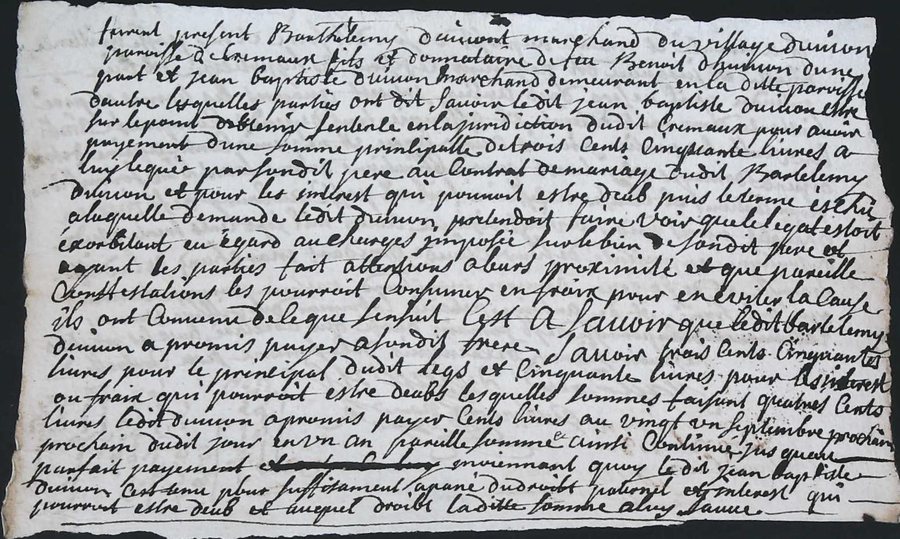 furent present Barthelemy duivon marchand du village duivon
paroisse de Cremaux fils et donnataire de feu Benoit duivon dune
part et jean baptiste duivon marchand demeurant en la ditte parroisse
dautre lesquelles parties ont dit savoir ledit jean baptiste duivon estre
sur le point dobtenir sentence en la juridiction dudit Cremaux pour avoir
payement dune somme principalle de trois Cents Cinquante livres a
luy leguée par sondit pere au Contrat de mariage dudit Bartelemy
duivon et pour les interest qui pouvoit estre deub puis le terme eschu
a laquelle demande ledit duivon pretendoit faire voir que le legat estoit
exorbitant eu egard au charges imposée sur le bien de sondit pere et
ayant les parties fait attentions a leurs proximité et que pareille
Contestations les pourroit Consumer en fraix pour en eviter la Cause
ils ont Convenu de ce que sensuit Cest A Savoir que ledit bartelemy
duivon a promis payer a sondit frere Savoir trois Cents Cinquantes
livres pour le principal dudit legs et Cinquante livres pour les interest
ou fraix qui pourroit estre deubs lesquelles sommes faisant quatres Cents
livres ledit duivon a promis payer Cents livres au vingt un septembre prochain
prochain dudit jour en un an pareille somme et ainsi Continuer jusques au
parfait payement moiennant quoy le dit jean baptiste
duivon cest tenu pour suffisament apané du droibt paternel et interest qui
pourroit estre deub et auquel droibt laditte somme a luy sauve